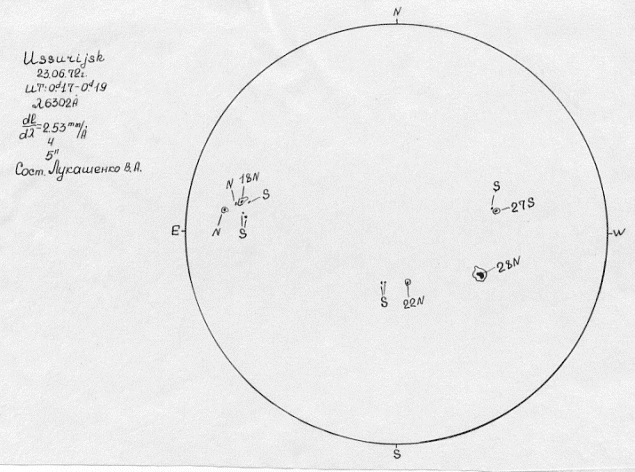 Ussurijsk
23.06.72г.
UT: 0ᵈ17-0ᵈ19
λ6302Å
dl/dλ=2.53 mm/Å
4
5"
Сост. Лукашенко В.А.
N
N 18N S
N S
E
W
S
27S
28N
S 22N
S